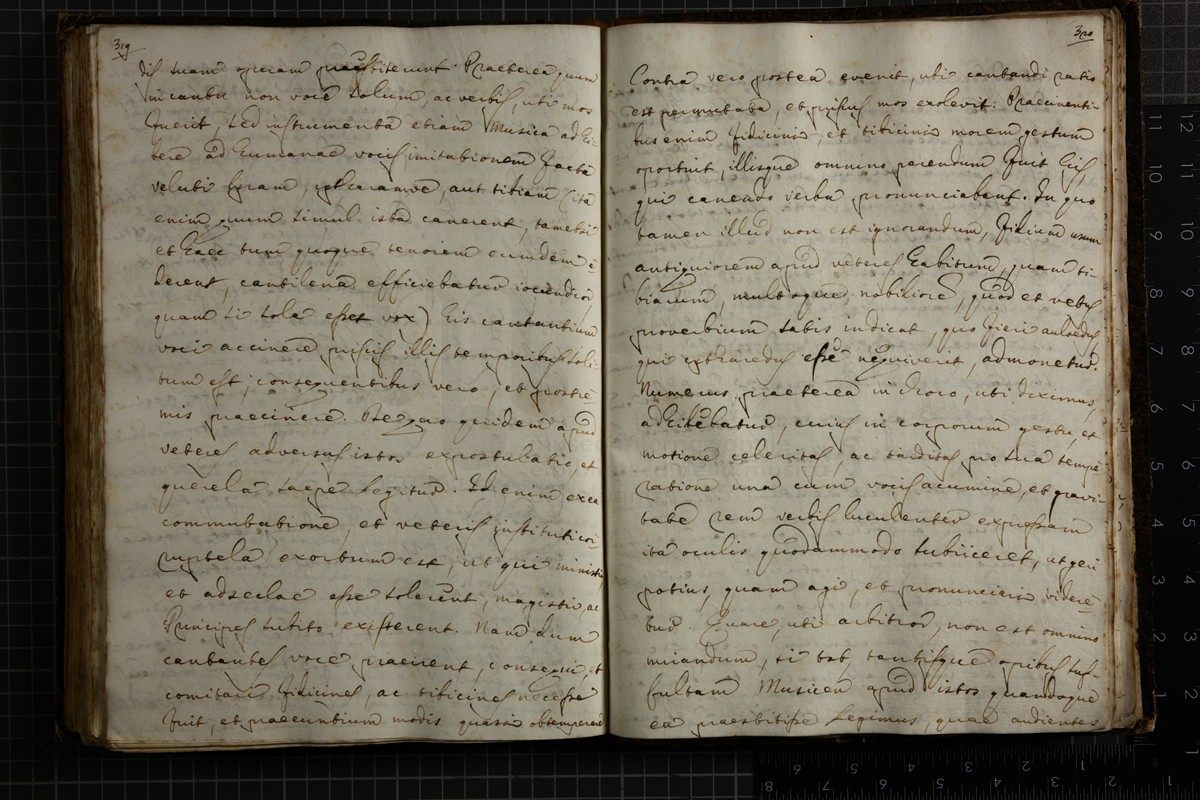 319
dis suam operam praebiterunt. Praeterea quum
in cantu non voce solum, ac verbis, uti mos
fuerit, sed instrumenta etiam Musica adhi-
bere ad humanae vocis imitationem facta
veluti lyram, cytharamve, aut tibiam (ita
enim quum simul ista canerent, tametsi
et haec tum quoque tenorem eumdem e
derent, cantilena efficiebatur iocundior
quam si sola esset vox) his cantantium
voci accinere priscis illis temporibus soli-
tum est; consequentibus vero, et postre
mis praecinere. De quo quidem apud
veteres adversus istos expostulatio, et
querela saepe legitur. Id enim ex ea
commutatione, et veteris instituti cor-
ruptela exortum est, ut qui ministri
et adseclae esse solerent, magistri, ac
Principes subito existerent. Nam dum
cantantes voce praeirent, consequi, et
comitari fidicines, ac tibicines necesse
fuit, et praeeuntium modis quasi obtemperare
320
Contra vero postea evenit, uti cantandi ratio
est permutata, et priscus mos exolevit. Praecinenti-
bus enim fidicinis, et tibicinis morem gestum
oportuit, illisque omnino parendum fuit his,
qui canendo verba pronunciabant. In quo
tamen illud non est ignorandum, fidium usum
antiquiorem apud veteres habitum, quam ti-
biarum, multoque nobiliorem, quod et vetus
proverbium satis indicat, quo fieri auloedus
qui cytharedus esse nequiverit, admonetur.
Numerus praeterea in choro, uti diximus
adhibebatur, cuius in corporum gestu, et
motione celeritas, ac tarditas pro sua tempe
ratione una cum vocis acumine, et gravi
tate rem verbis luculenter expressam
ita oculis quodammodo subiiceret, ut geri
potius, quam agi, et pronunciari videre
tur. Quare, uti arbitror, non est omnino
mirandum, si tot, tantisque opibus suf-
fultam Musicen apud istos quandoque
ea praestitisse legimus, quae audientes